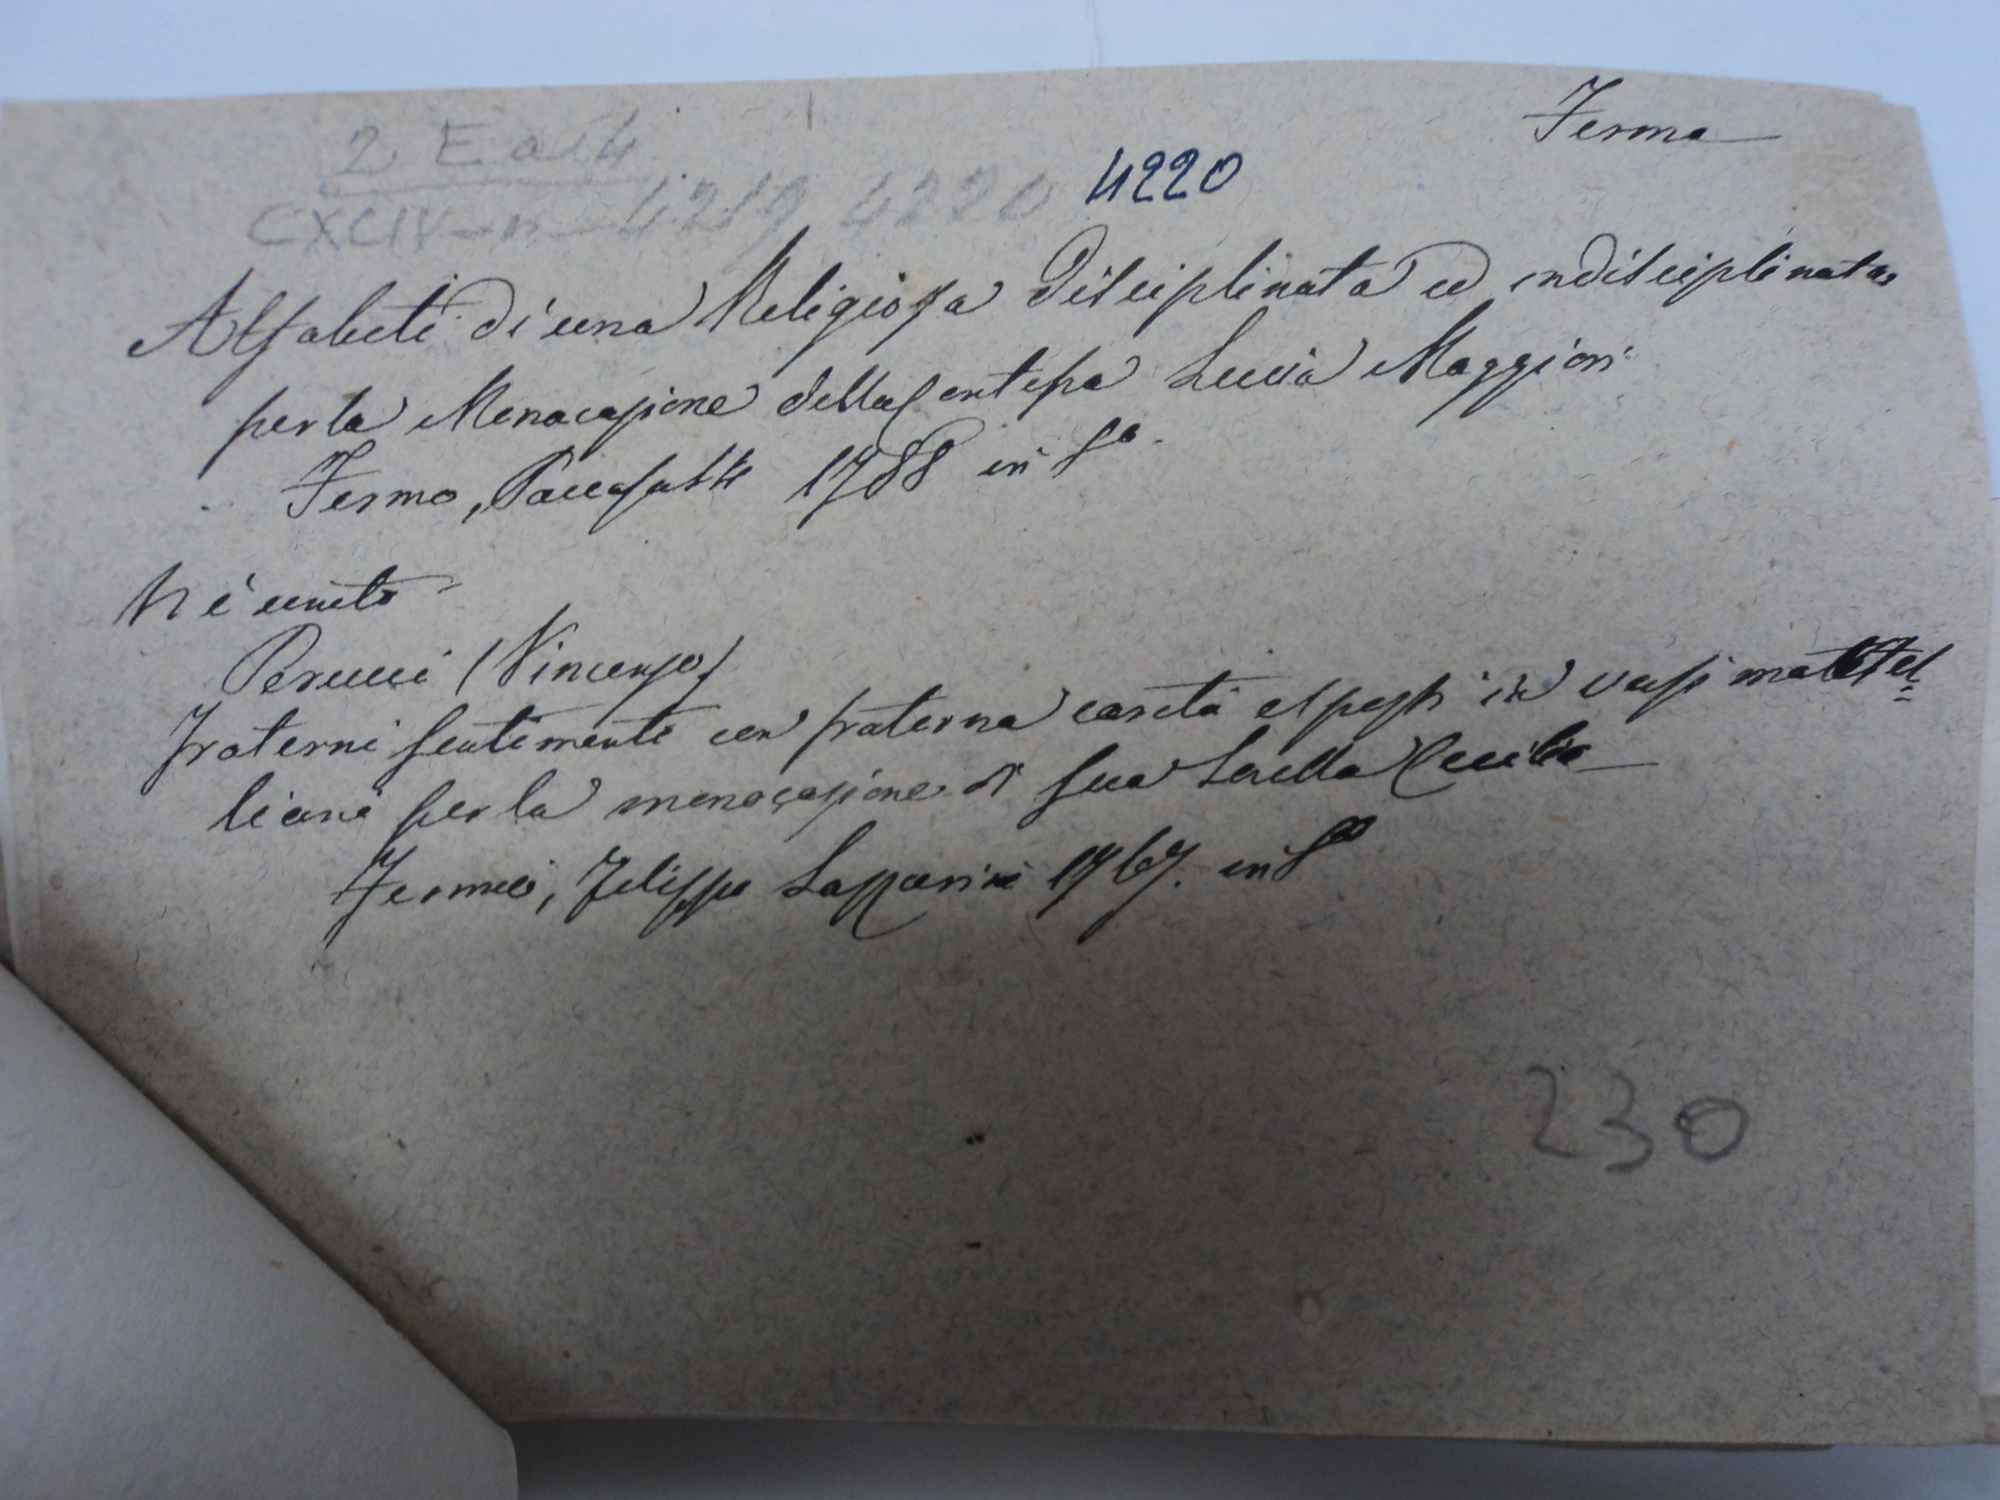 Fermo
2 E a 4
CXCIV - n - 4219 4220 4220
Alfabeti di una Religiosa disciplinata ed indisciplinata
per la Monacazione della Contessa Lucia Maggiori
Fermo, Paccasassi 1788 in 8º.
Vi é unito
Perucci (Vincenzo)
Fraterni sentimenti con fraterna carità espressi in versi martel=
liani per la monacazione di sua Sorella Cecilia
Fermo, Filippo Lazzarini 1767. in 8º
230